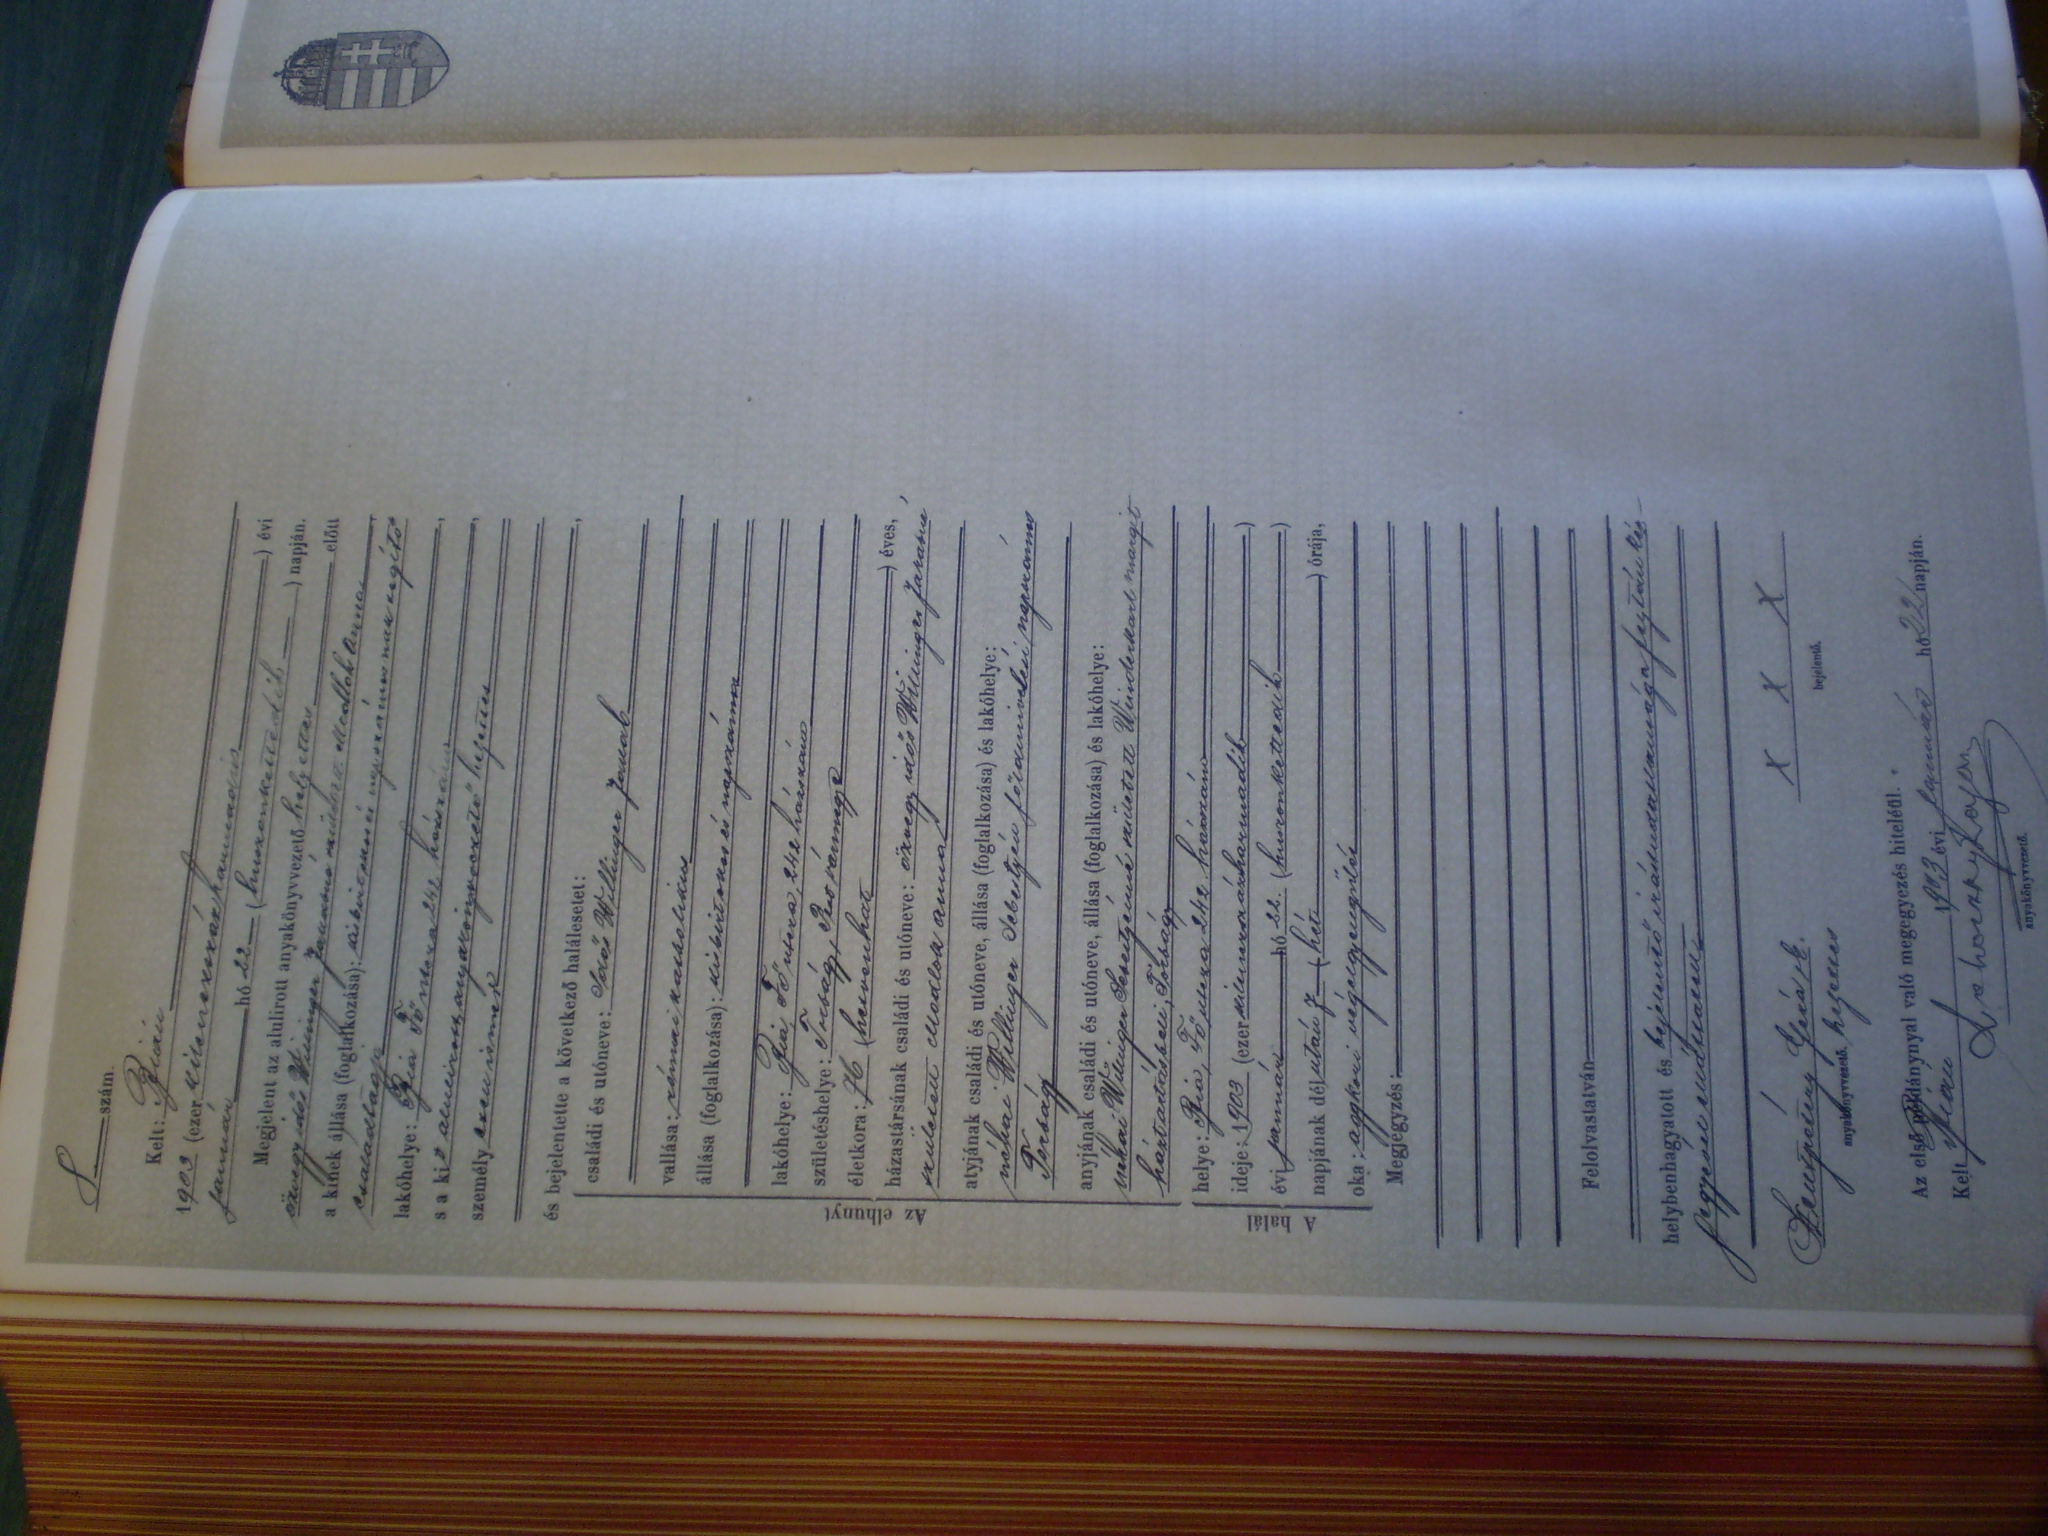 8 szám.
Kelt: Bián
1903 (ezerkilenczszázharmadik
január hó 22 (huszonkettedik ) évi ) napján.
Megjelent az alulirott anyakönyvvezető helyettes előtt
özvegy idős Willinger Jakabné született Madlok Anna
a kinek állása (foglalkozása): kisbirtokos és napszámosnak segítő
családtagja
lakóhelye: Bia Fő utcza 242 házszám,
s a kit alulirott anyakönyvvezető helyettes
személyesen ismer,
és bejelentette a következő halálesetet:
Az elhunyt
családi és utóneve: Idős Willinger Jakab
vallása: római katholikus
állása (foglalkozása): kisbirtokos és napszámos
lakóhelye: Bia, Fő utcza, 242 házszám
születéshelye: Torbágy, Pest vármegye
életkora: 76 (hetvenhat ) éves,
házastársának családi és utóneve: özvegy idős Willinger Jakabné
született Madlok Anna
atyjának családi és utóneve, állása (foglalkozása) és lakóhelye:
néhai Willinger Sebestyén földmívelési napszámos
Torbágy
anyjának családi és utóneve, állása (foglalkozása) és lakóhelye:
néhai Willinger Sebestyénné született Margit
háztartásbeli, Torbágy
A halál
helye: Bia, Fő utcza 242 házszám
ideje: 1903 (ezerkilenczszázharmadik )
évi január hó 22. (huszonkettedik )
napjának délután 7 (hét ) órája,
oka: aggkori végelgyengülés
Megjegyzés:
Felolvastatván
helybenhagyatott és bejelentő írástudatlansága folytán kéz-
jegyével ellátván
anyakönyvvezető. helyettes
x x x
bejelentő.
Az első példánynyal való megegyezés hiteléül.
Kelt Bián 1903 évi január hó 22 napján.
anyakönyvvezető.